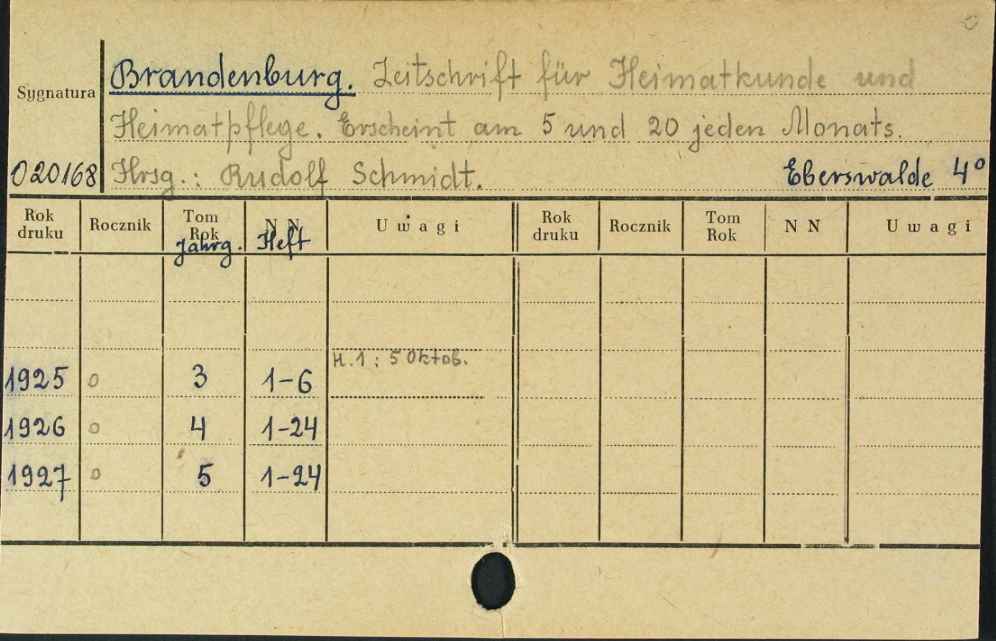 Brandenburg. Zeitschrift für Heimatkunde und
Sygnatura
Heimatpflege. Erscheint am 5 und 20 jeden Monats.
020168 Hrsg.: Rudolf Schmidt. Eberswalde 4°
Rok druku Rocznik Tom Rok Jahrg. N N Heft Uwagi Rok druku Rocznik Tom Rok N N Uwagi
H. 1 : 5 Oktob.
1925 o 3 1-6
1926 o 4 1-24
1927 o 5 1-24